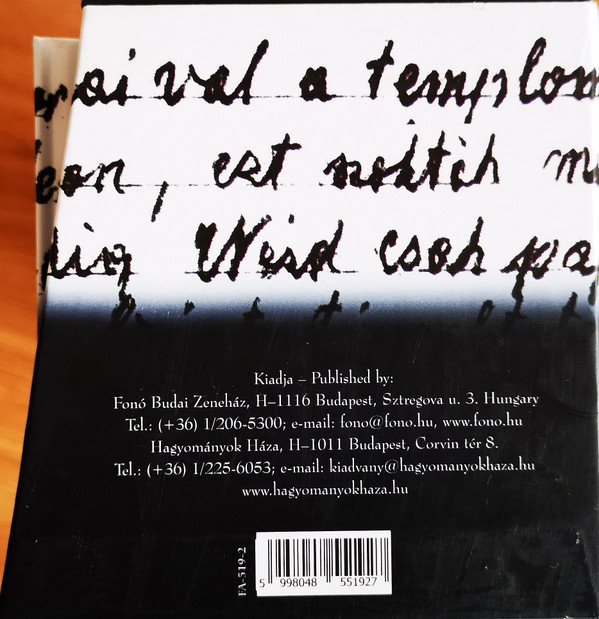 val a templom
ezt
Kiadja – Published by:
Fonó Budai Zeneház, H–1116 Budapest, Sztregova u. 3. Hungary
Tel.: (+36) 1/206-5300; e-mail: fono@fono.hu, www.fono.hu
Hagyományok Háza, H–1011 Budapest, Corvin tér 8.
Tel.: (+36) 1/225-6053; e-mail: kiadvany@hagyomanyokhaza.hu
www.hagyomanyokhaza.hu
FA-519-2
5 998048 551927